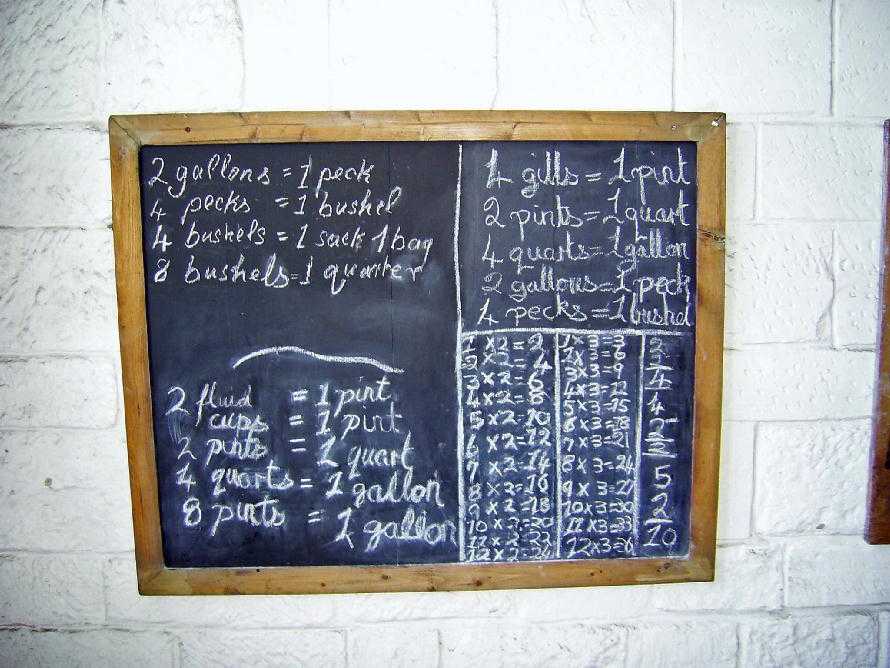 2 gallons = 1 peck
4 pecks = 1 bushel
4 bushels = 1 sack 1 bag
8 bushels = 1 quarter
2 fluid = 1 pint
cups = 1 pint
2 pints = 1 quart
4 quarts = 1 gallon
8 pints = 1 gallon
4 gills = 1 pint
2 pints = 1 quart
4 quarts = 1 gallon
2 gallons = 1 peck
4 pecks = 1 bushel
1 x 2 = 2
2 x 2 = 4
3 x 2 = 6
4 x 2 = 8
5 x 2 = 10
6 x 2 = 12
7 x 2 = 14
8 x 2 = 16
9 x 2 = 18
10 x 2 = 20
11 x 2 = 22
12 x 2 = 24
1 x 3 = 3
2 x 3 = 6
3 x 3 = 9
4 x 3 = 12
5 x 3 = 15
6 x 3 = 18
7 x 3 = 21
8 x 3 = 24
9 x 3 = 27
10 x 3 = 30
11 x 3 = 33
12 x 3 = 36
2
2
4
4
2
5
2
10